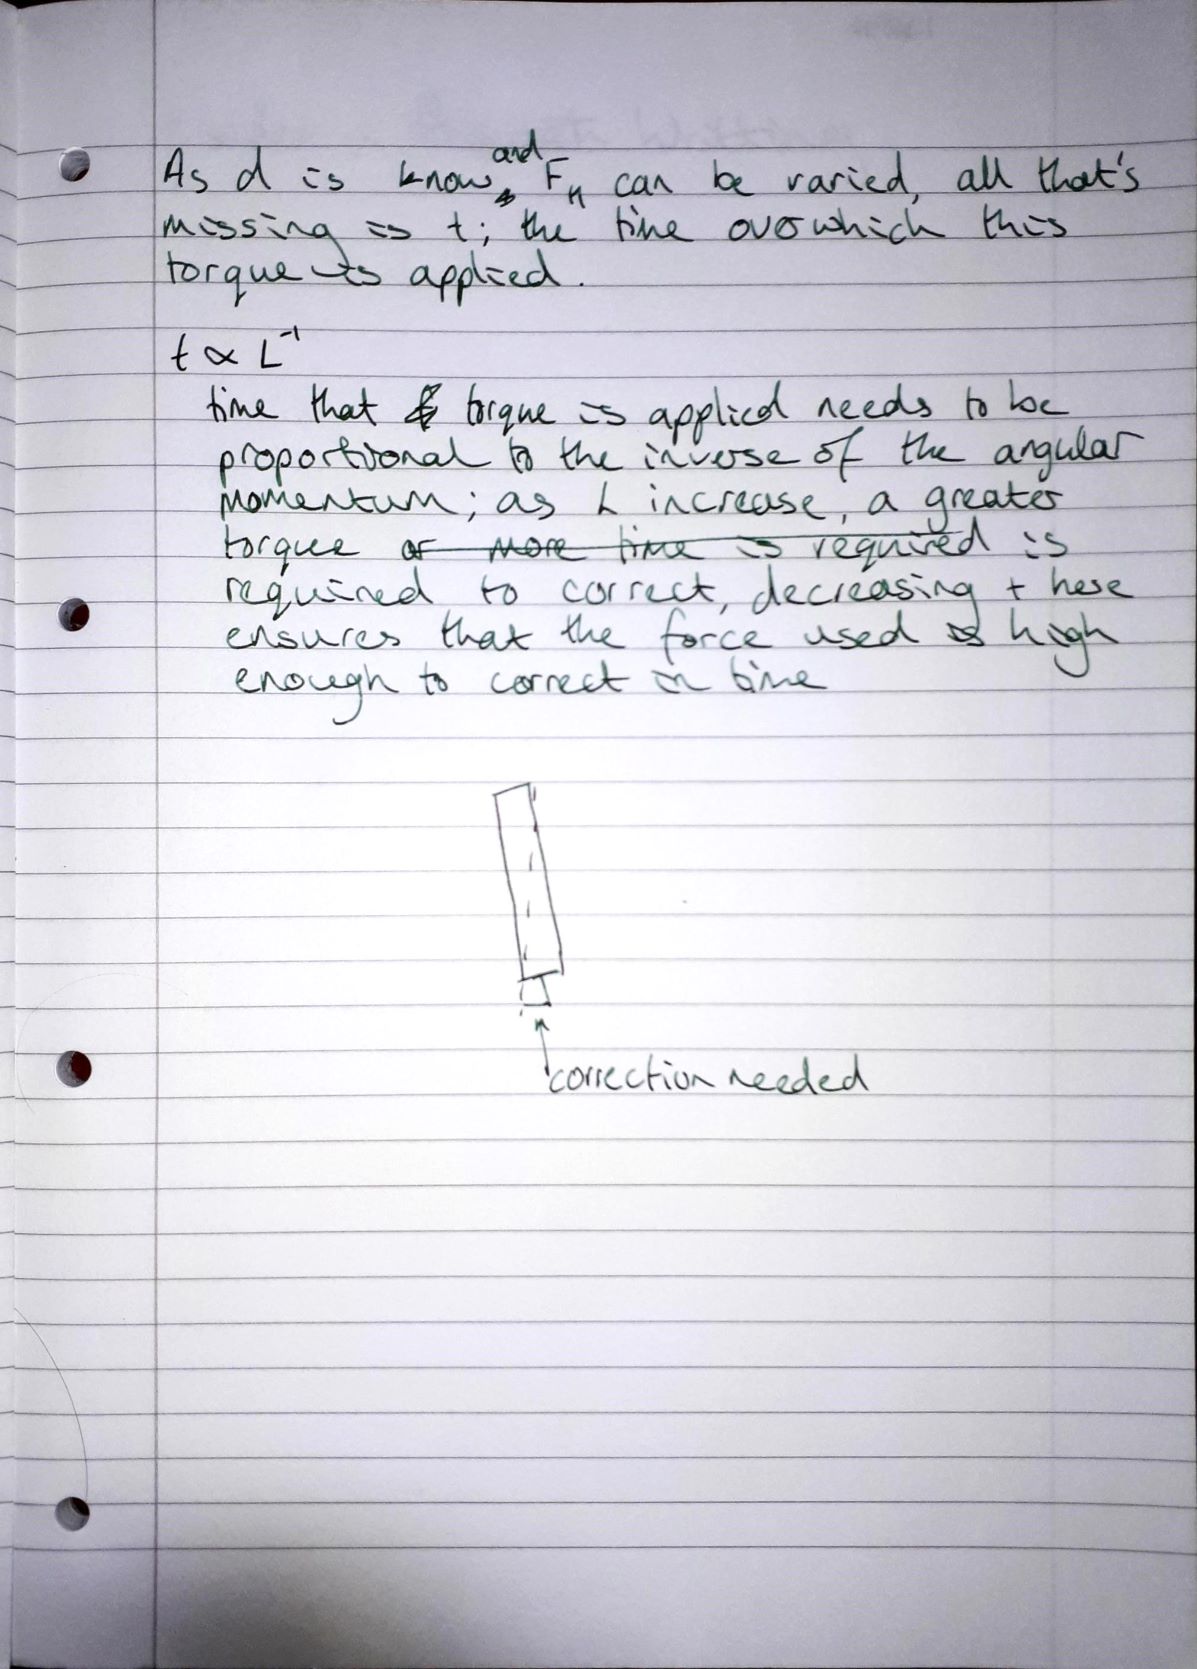 As d is know and F_H can be varied, all that's
missing is t; the time over which this
torque is applied.
t ∝ L⁻¹
time that torque is applied needs to be
proportional to the inverse of the angular
momentum; as L increase, a greater
torque or more time is required is
required to correct, decreasing t here
ensures that the force used is high
enough to correct in time
correction needed